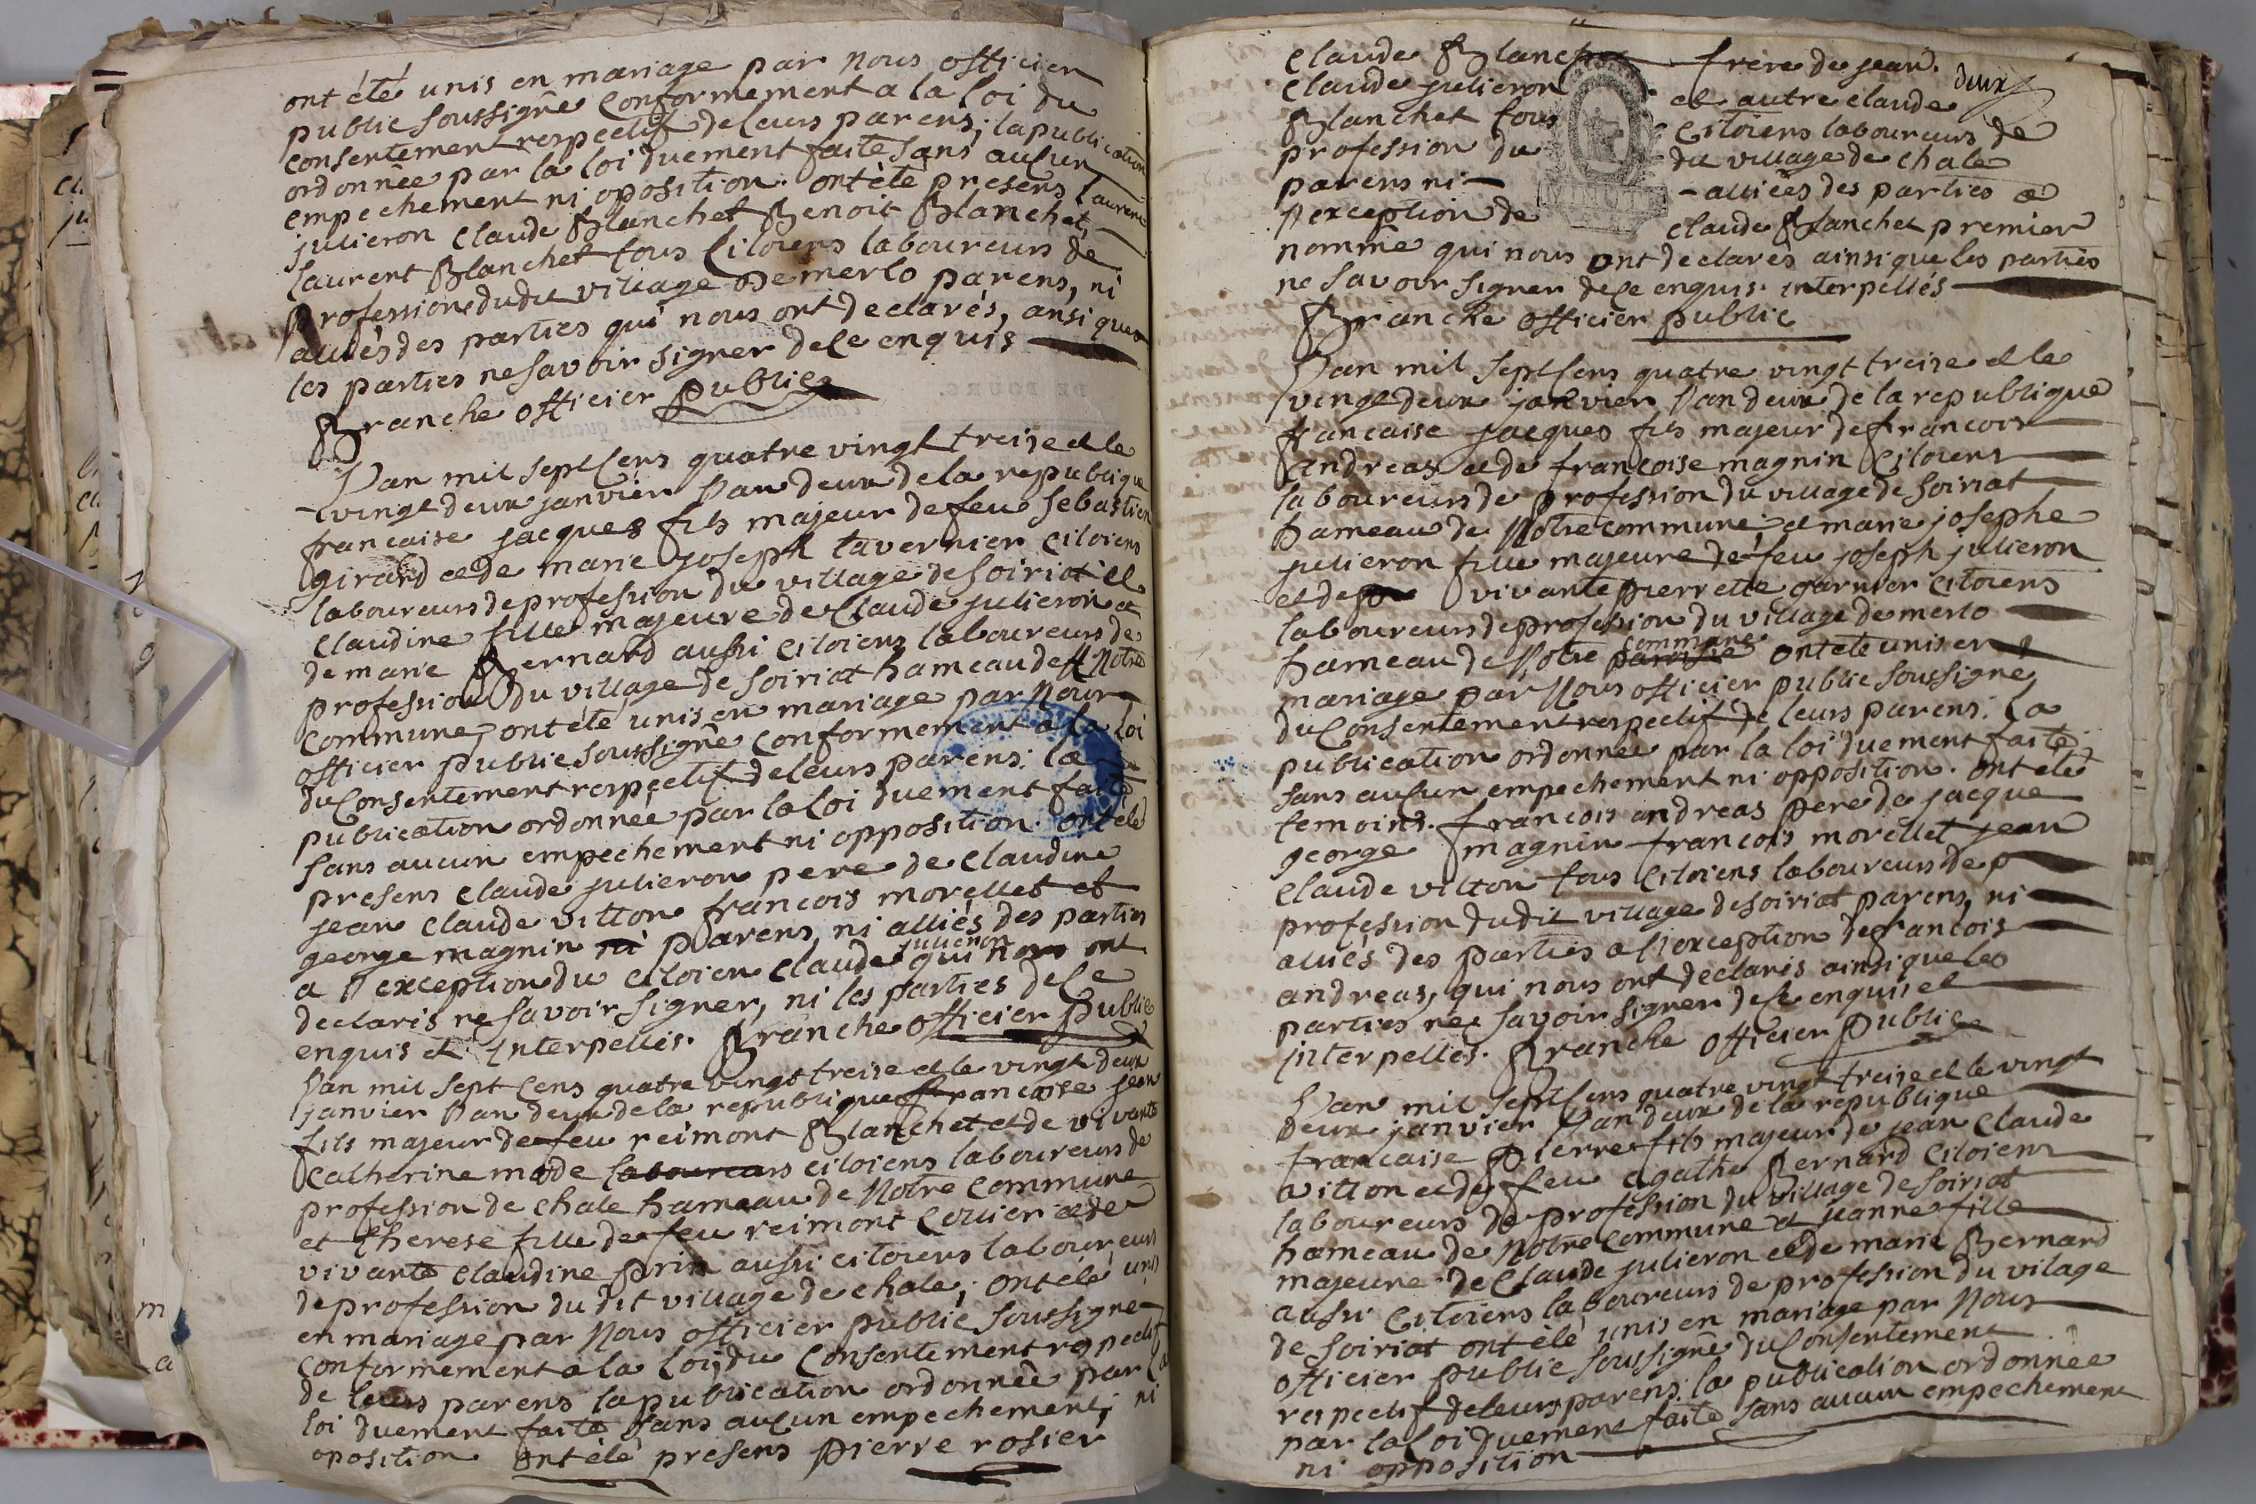 ont été unis en mariage par nous officier
public soussigné conformement a la loi du
consentement respectif de leurs parens; la publication
ordonnée par la loi duement faite sans aucun
empechement ni oposition. ont été presens laurent
julieron claude Blanchet Benoit Blanchet,
laurent Blanchet tous citoiens laboureurs de
profession dudit village de merlo parens, ni
alliés des parties qui nous ont declarés, ansi que
les parties ne savoir signer de ce enquis
Branche officier public
L'an mil sept cens quatre vingt treise et le
vingt deux janvier l'an deux de la republique
francaise jacques fils majeur de feu sebastien
girard et de marie joseph tavernier citoiens
laboureurs de profession du village de soiriat et
claudine fille majeure de claude julieron et
de marie Bernard aussi citoiens laboureurs de
profession du village de soiriat hameau de Notre
commune, ont été unis en mariage par Nous
officier public soussigné conformement a la loi
du consentement respectif de leurs parens: la
publication ordonnée par la loi duement faite
sans aucun empechement ni opposition. ont eté
presens claude julieron pere de claudine
jean claude vitton francois morellet et
george magnin ni parens, ni alliés des parties
a l'exception du citoien claude julieron qui nous ont
declaris ne savoir signer, ni les parties de ce
enquis et interpellés. Branche officier public
L'an mil sept cens quatre vingt treise et le vingt deux
janvier l'an deux de la republique francaise jean
fils majeur de feu reimont Blanchet et de vivante
catherine mode laboureurs citoiens laboureurs de
profession de chale hameau de Notre commune
et therese fille de feu reimont collier et de
vivante claudine prin aussi citoiens laboureurs
de profession du dit village de chale; ont eté unis
en mariage par Nous officier public soussigné
conformement a la loi, du consentement respectif
de leurs parens la publication ordonnée par la
loi duement faite sans aucun empechement, ni
oposition ont été presens pierre rosier
deux
claude Blanchet frere de jean.
claude julieron et autre claude
Blanchet tous citoiens laboureurs de
profession du du village de chale
parens ni alliées des parties a
l'exception de claude Blanchet premier
nommé qui nous ont declarés ainsi que les parties
ne savoir signer de ce enquis interpellés
Branche officier public
L'an mil sept cens quatre vingt treise et le
vingt deux janvier l'an deux de la republique
francaise jacques fils majeur de francois
andreas et de francoise magnin citoiens
laboureurs de profession du village de soiriat
hameau de Notre commune et marie josephe
julieron fille majeure de feu joseph julieron
et de vivante pierrette garnier citoiens
laboureurs de profession du village de merlo
hameau de Notre paroisse commune ont eté unis en
mariage par Nous officier public soussigné
du consentement respectif de leurs parens: la
publication ordonnée par la loi duement faite
sans aucun empechement ni opposition. ont eté
temoins. francois andreas pere de jacque
george magnin francois morellet jean
claude vitton tous citoiens laboureurs de p
profession dudit village de soiriat parens, ni
alliés des parties a l'exception de francois
andreas, qui nous ont declaris ainsi que les
parties ne savoir signer de ce enquis et
interpellés. Branche officier public
L'an mil sept cens quatre vingt treise et le vingt
deux janvier l'an deux de la republique
francaise pierre fils majeur de jean claude
vitton et de feu agathe Bernard citoiens
laboureurs de profession du village de soiriat
hameau de Notre commune et jeanne fille
majeure de claude julieron et de marie Bernard
aussi citoiens laboureurs de profession du vilage
de soiriat ont été unis en mariage par Nous
officier public soussigné du consentement
respectif de leurs parens: la publication ordonnée
par la loi duement faite sans aucun empechement
ni opposition